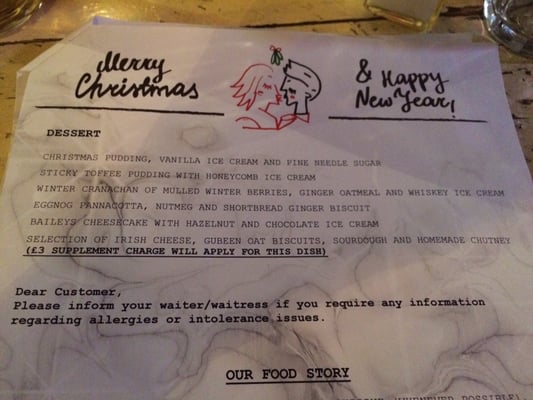 Merry
Christmas
& Happy
New Year!
DESSERT
CHRISTMAS PUDDING, VANILLA ICE CREAM AND PINE NEEDLE SUGAR
STICKY TOFFEE PUDDING WITH HONEYCOMB ICE CREAM
WINTER CRANACHAN OF MULLED WINTER BERRIES, GINGER OATMEAL AND WHISKEY ICE CREAM
EGGNOG PANNACOTTA, NUTMEG AND SHORTBREAD GINGER BISCUIT
BAILEYS CHEESECAKE WITH HAZELNUT AND CHOCOLATE ICE CREAM
SELECTION OF IRISH CHEESE, GUBEEN OAT BISCUITS, SOURDOUGH AND HOMEMADE CHUTNEY
(£3 SUPPLEMENT CHARGE WILL APPLY FOR THIS DISH)
Dear Customer,
Please inform your waiter/waitress if you require any information
regarding allergies or intolerance issues.
OUR FOOD STORY
(WHENEVER POSSIBLE).